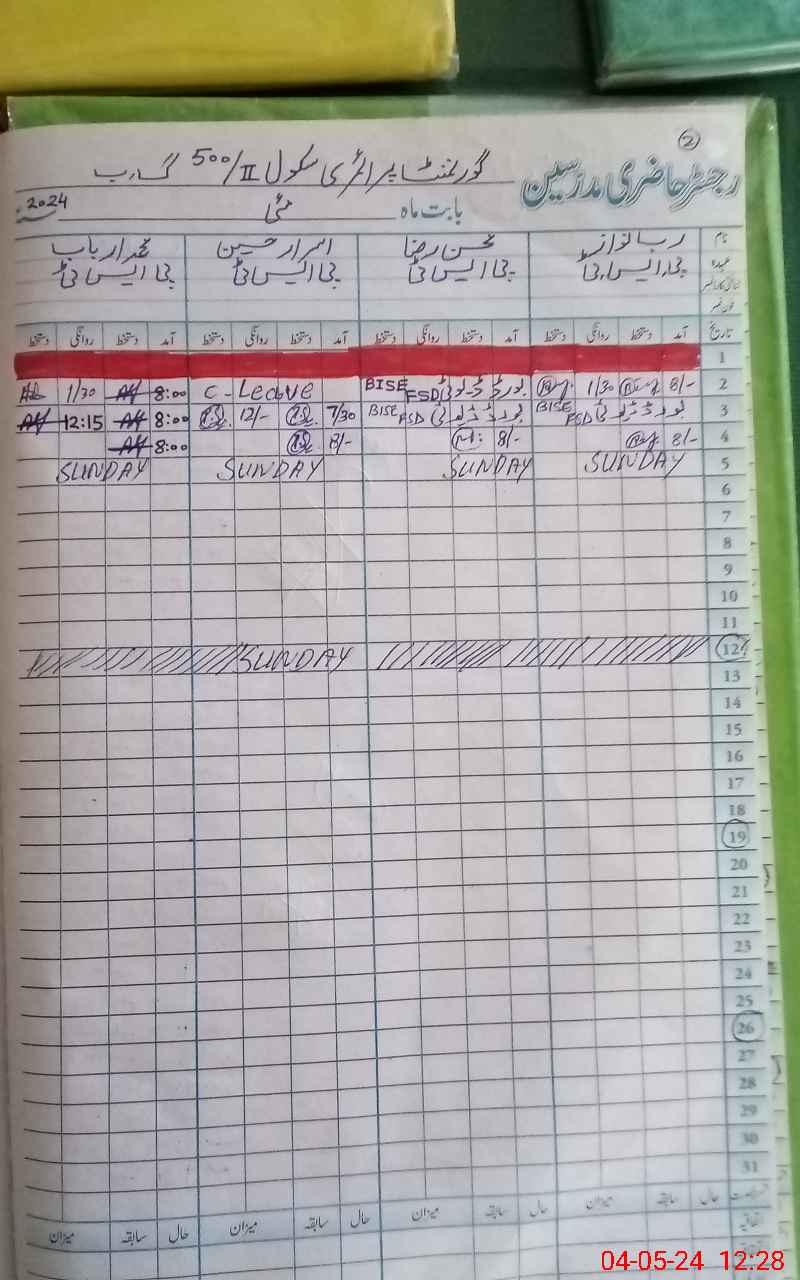 ②
رجسٹر حاضری مدرسین
گورنمنٹ پرائمری سکول 500/II گ ب
بابت ماہ مئی سنہ 2024
نام رب نواز محسن رضا اسرار حسین محمد ارباب
عہدہ پی ایس ٹی پی ایس ٹی پی ایس ٹی پی ایس ٹی
تاریخ آمد دستخط روانگی دستخط آمد دستخط روانگی دستخط آمد دستخط روانگی دستخط آمد دستخط روانگی دستخط
1
2 8/- 1/30 بورڈ ڈیوٹی BISE FSD C-Leave 8:00 1/30
3 بورڈ ڈیوٹی BISE FSD بورڈ ڈیوٹی BISE FSD 7/30 12/- 8:00 12:15
4 8/- 8/- 8/- 8:00
5 SUNDAY SUNDAY SUNDAY SUNDAY
6
7
8
9
10
11
12 SUNDAY
13
14
15
16
17
18
19
20
21
22
23
24
25
26
27
28
29
30
31
حال سابقہ میزان حال سابقہ میزان حال سابقہ میزان حال سابقہ میزان
اتفاقیہ
04-05-24 12:28